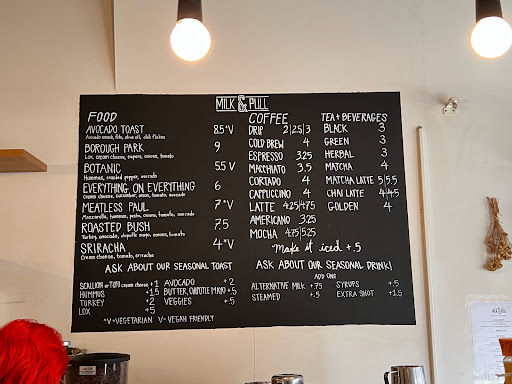 MILK & PULL
FOOD
AVOCADO TOAST 8.5 *V
Avocado smash, feta, olive oil, chili flakes
BOROUGH PARK 9
Lox, cream cheese, capers, onions, tomato
BOTANIC 5.5 V
Hummus, roasted pepper, avocado
EVERYTHING ON EVERYTHING 6
Cream cheese, cucumber, onion, tomato, avocado
MEATLESS PAUL 7 *V
Mozzarella, hummus, pesto, onions, tomato, avocado
ROASTED BUSH 7.5
Turkey, avocado, chipotle mayo, onions, tomato
SRIRACHA 4 *V
Cream cheese, tomato, sriracha
ASK ABOUT OUR SEASONAL TOAST
SCALLION or TOFU cream cheese +1
HUMMUS +1.5
TURKEY +2
LOX +5
AVOCADO +2
BUTTER, CHIPOTLE MAYO +.5
VEGGIES +.5
*V = VEGETARIAN V - VEGAN FRIENDLY
COFFEE
DRIP 2|2.5|3
COLD BREW 4
ESPRESSO 3.25
MACCHIATO 3.5
CORTADO 4
CAPPUCCINO 4
LATTE 4.25|4.75
AMERICANO 3.25
MOCHA 4.75|5.25
TEA + BEVERAGES
BLACK 3
GREEN 3
HERBAL 3
MATCHA 4
MATCHA LATTE 5|5.5
CHAI LATTE 4|4.5
GOLDEN 4
Make it iced +.5
ASK ABOUT OUR SEASONAL DRINK!
ADD ONE
ALTERNATIVE MILK +.75
STEAMED +.5
SYRUPS +.5
EXTRA SHOT +1.5